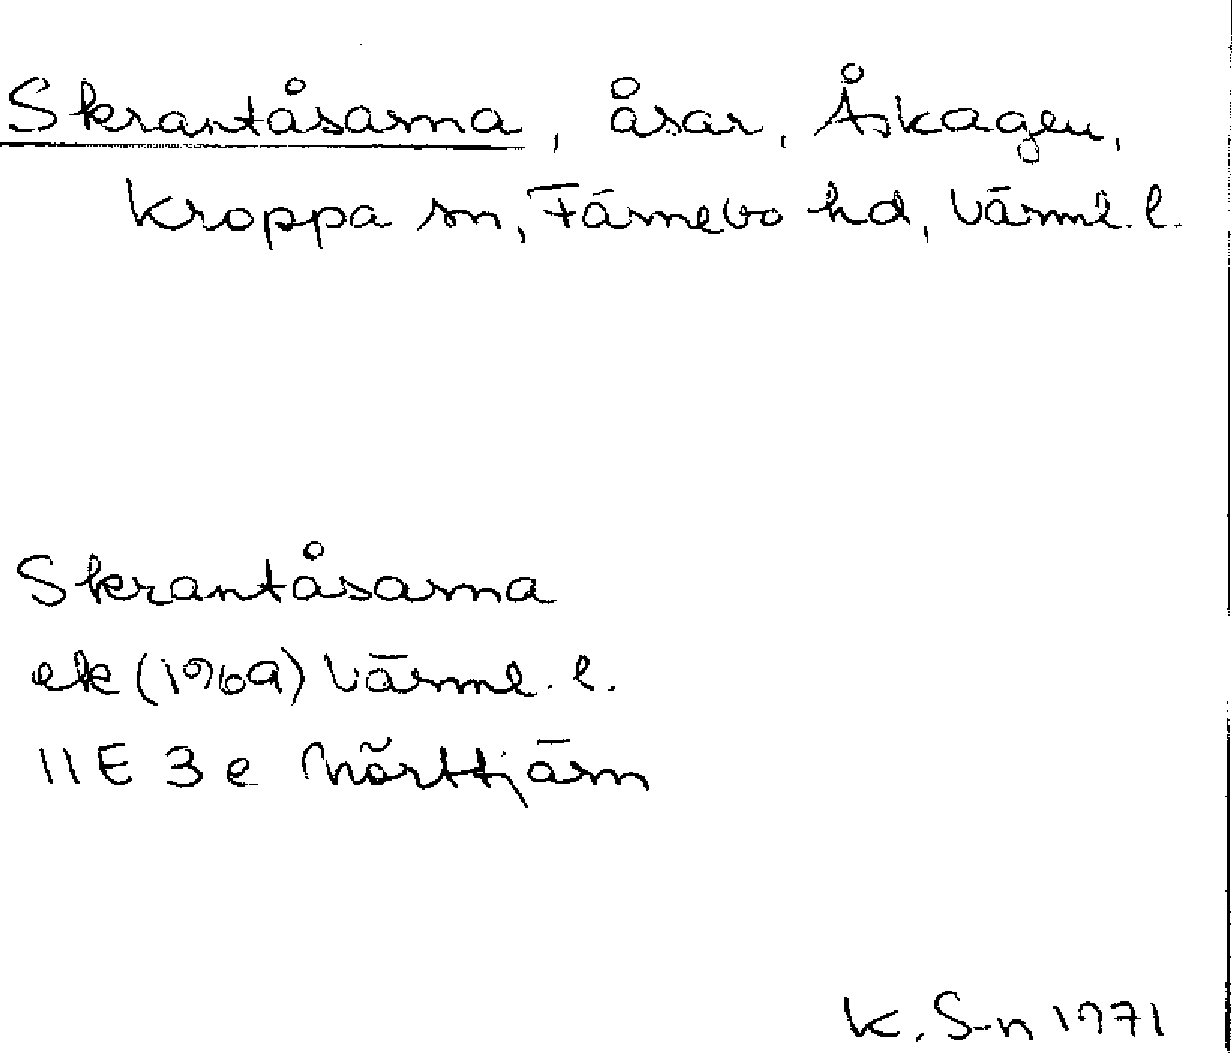 Skrantåsarna, åsar, Åskagen,
Kroppa sn, Färnebo hd, Värml. l.
Skrantåsarna
ek (1969) Värml. l.
11E 3e Mörttjärn
K. S-n 1971